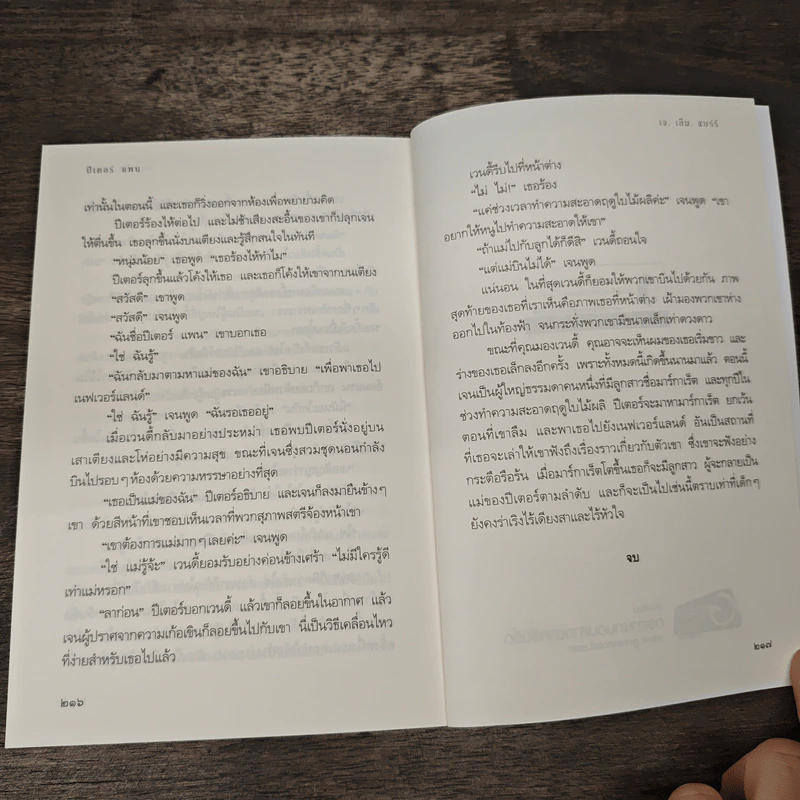 ปีเตอร์ แพน
เท่านั้นในตอนนี้ และเธอก็วิ่งออกจากห้องเพื่อพยายามคิด
ปีเตอร์ร้องไห้ต่อไป และไม่ช้าเสียงสะอื้นของเขาก็ปลุกเจน
ให้ตื่นขึ้น เธอลุกขึ้นนั่งบนเตียงและรู้สึกสนใจในทันที
“หนุ่มน้อย” เธอพูด “เธอร้องไห้ทำไม”
ปีเตอร์ลุกขึ้นแล้วโค้งให้เธอ และเธอก็โค้งให้เขาจากบนเตียง
“สวัสดี” เขาพูด
“สวัสดี” เจนพูด
“ฉันชื่อปีเตอร์ แพน” เขาบอกเธอ
“ใช่ ฉันรู้”
“ฉันกลับมาตามหาแม่ของฉัน” เขาอธิบาย “เพื่อพาเธอไป
เนฟเวอร์แลนด์”
“ใช่ ฉันรู้” เจนพูด “ฉันรอเธออยู่”
เมื่อเวนดี้กลับมาอย่างประหม่า เธอพบปีเตอร์นั่งอยู่บน
เสาเตียงและโห่อย่างมีความสุข ขณะที่เจนซึ่งสวมชุดนอนกำลัง
บินไปรอบๆ ห้องด้วยความหรรษาอย่างที่สุด
“เธอเป็นแม่ของฉัน” ปีเตอร์อธิบาย และเจนก็ลงมายืนข้างๆ
เขา ด้วยสีหน้าที่เขาชอบเห็นเวลาที่พวกสุภาพสตรีจ้องหน้าเขา
“เขาต้องการแม่มากๆ เลยค่ะ” เจนพูด
“ใช่ แม่รู้จ้ะ” เวนดี้ยอมรับอย่างค่อนข้างเศร้า “ไม่มีใครรู้ดี
เท่าแม่หรอก”
“ลาก่อน” ปีเตอร์บอกเวนดี้ แล้วเขาก็ลอยขึ้นในอากาศ แล้ว
เจนผู้ปราศจากความเก้อเขินก็ลอยขึ้นไปกับเขา นี่เป็นวิธีเคลื่อนไหว
ที่ง่ายสำหรับเธอไปแล้ว
๒๑๖
เจ. เอ็ม. แบร์รี
เวนดี้รีบไปที่หน้าต่าง
“ไม่ ไม่!” เธอร้อง
“แค่ช่วงเวลาทำความสะอาดฤดูใบไม้ผลิค่ะ” เจนพูด “เขา
อยากให้หนูไปทำความสะอาดให้เขา”
“ถ้าแม่ไปกับลูกได้ก็ดีสิ” เวนดี้ถอนใจ
“แต่แม่บินไม่ได้” เจนพูด
แน่นอน ในที่สุดเวนดี้ก็ยอมให้พวกเขาบินไปด้วยกัน ภาพ
สุดท้ายของเธอที่เราเห็นคือภาพเธอที่หน้าต่าง เฝ้ามองพวกเขาห่าง
ออกไปในท้องฟ้า จนกระทั่งพวกเขามีขนาดเล็กเท่าดวงดาว
ขณะที่คุณมองเวนดี้ คุณอาจจะเห็นผมของเธอเริ่มขาว และ
ร่างของเธอเล็กลงอีกครั้ง เพราะทั้งหมดนี้เกิดขึ้นนานมาแล้ว ตอนนี้
เจนเป็นผู้ใหญ่ธรรมดาคนหนึ่งที่มีลูกสาวชื่อมาร์กาเร็ต และทุกปีใน
ช่วงทำความสะอาดฤดูใบไม้ผลิ ปีเตอร์จะมาหามาร์กาเร็ต ยกเว้น
ตอนที่เขาลืม และพาเธอไปยังเนฟเวอร์แลนด์ อันเป็นสถานที่
ที่เธอจะเล่าให้เขาฟังถึงเรื่องราวเกี่ยวกับตัวเขา ซึ่งเขาจะฟังอย่าง
กระตือรือร้น เมื่อมาร์กาเร็ตโตขึ้นเธอก็จะมีลูกสาว ผู้จะกลายเป็น
แม่ของปีเตอร์ตามลำดับ และก็จะเป็นไปเช่นนี้ตราบเท่าที่เด็กๆ
ยังคงร่าเริงไร้เดียงสาและไร้หัวใจ
จบ
๒๑๗